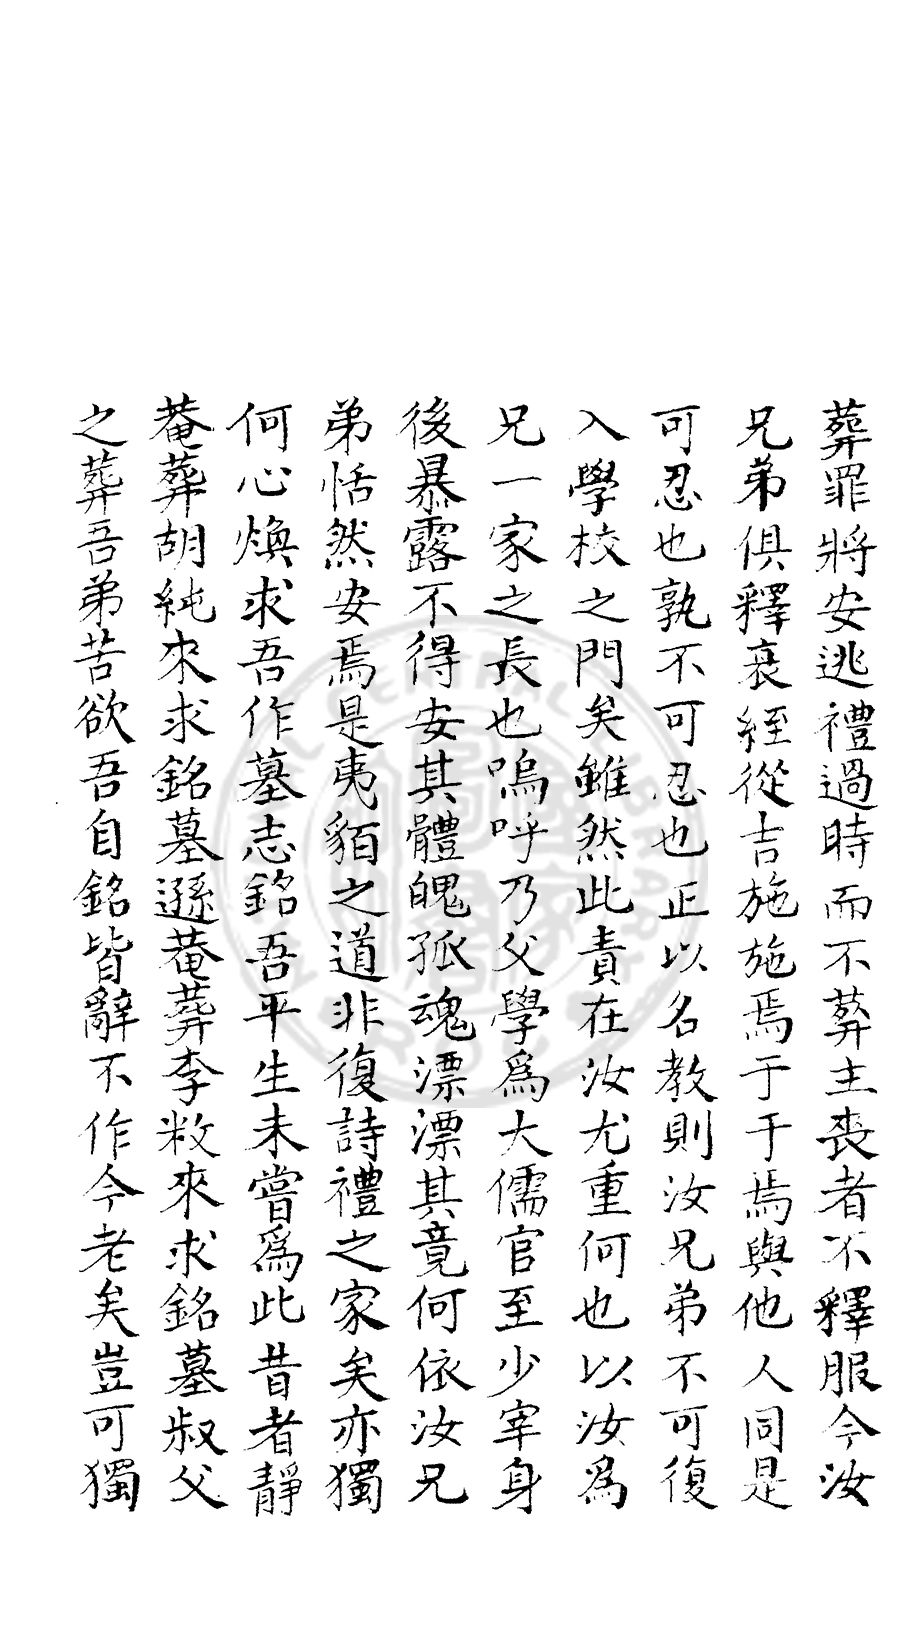 葬罪將安逃禮過時而不葬主喪者不釋服今汝
兄弟俱釋衰絰從吉施施焉于于焉與他人同是
可忍也孰不可忍也正以名教則汝兄弟不可復
入學校之門矣雖然此責在汝尤重何也以汝爲
兄一家之長也嗚呼乃父學爲大儒官至少宰身
後暴露不得安其體魄孤魂漂漂其竟何依汝兄
弟恬然安焉是夷貊之道非復詩禮之家矣亦獨
何心煥求吾作墓志銘吾平生未嘗爲此昔者靜
菴葬胡純來求銘墓遜菴葬李敉來求銘墓叔父
之葬吾弟苦欲吾自銘皆辭不作今老矣豈可獨